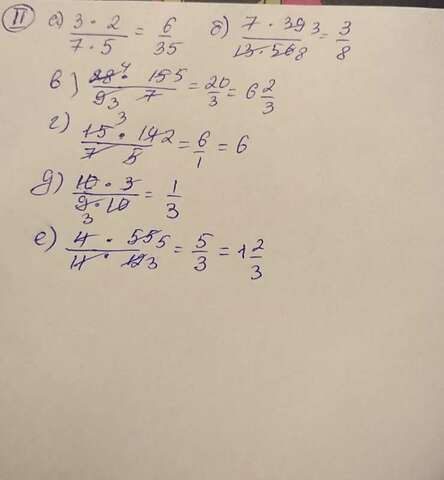 11 а) 3 · 2 / 7 · 5 = 6/35 б) 7 · 39 3 / 13 · 56 8 = 3/8
в) 28 4 · 15 5 / 9 3 7 = 20/3 = 6 2/3
г) 15 3 · 14 2 / 7 5 = 6/1 = 6
д) 10 · 3 / 9 3 · 10 = 1/3
е) 4 · 55 5 / 11 · 12 3 = 5/3 = 1 2/3